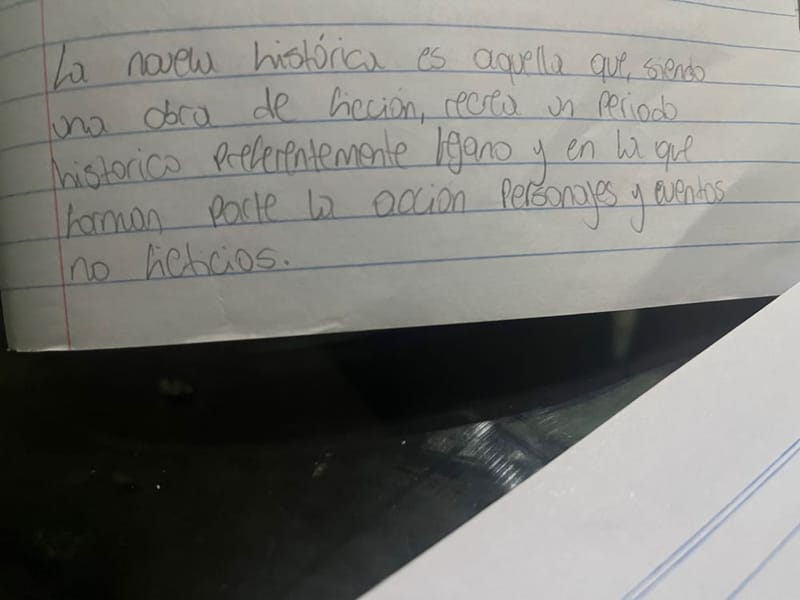 La novela histórica es aquella que, siendo
una obra de ficción, recrea un periodo
historico preferentemente lejano y en la que
forman parte la acción personajes y eventos
no ficticios.